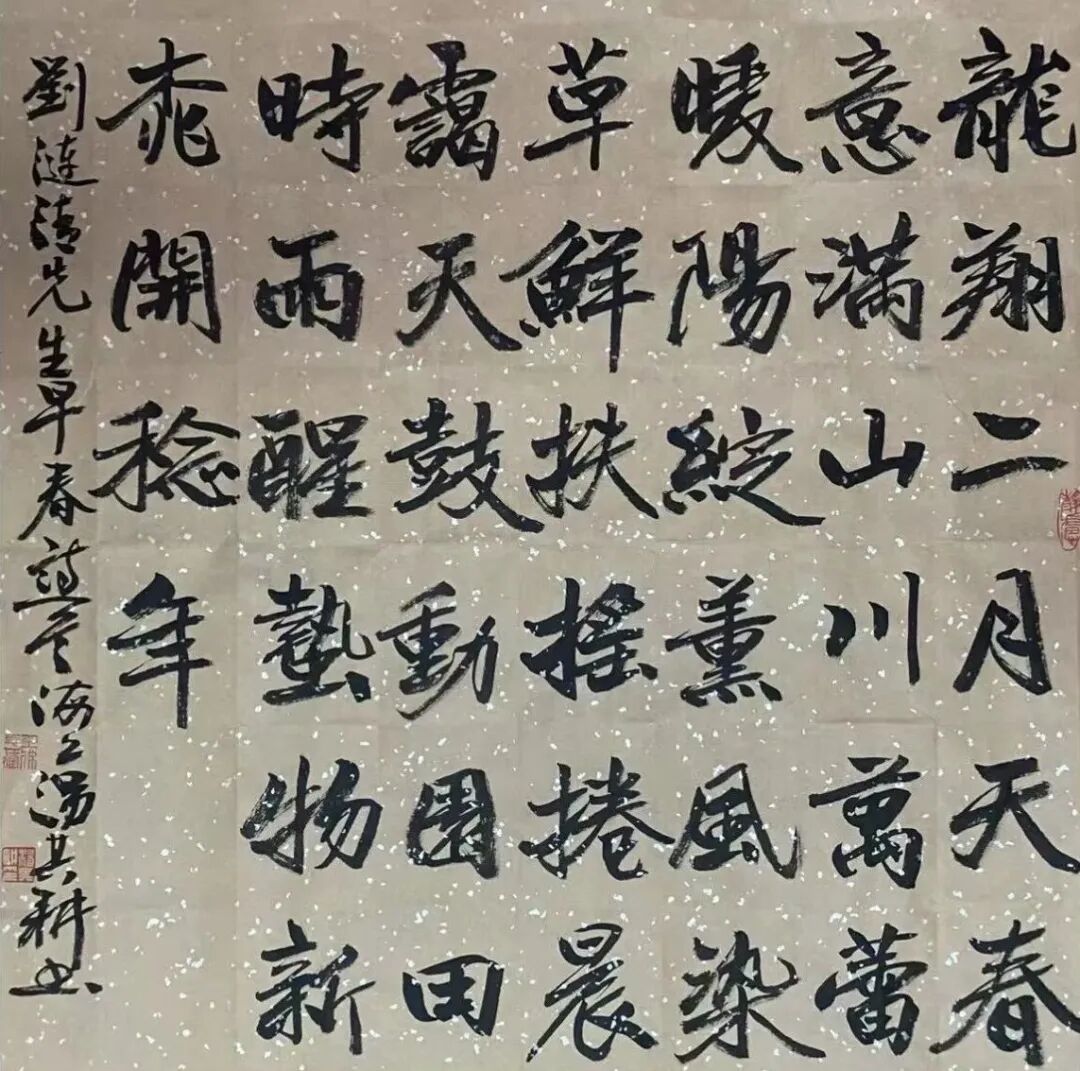 龍翔二月天春
意滿山川萬蕾
暖陽綻薰風染
草鮮扶搖捲晨
靄天鼓動園田
時雨醒蟄物新
桃開稔年
劉漣清先生早春詩 海上湯其耕書